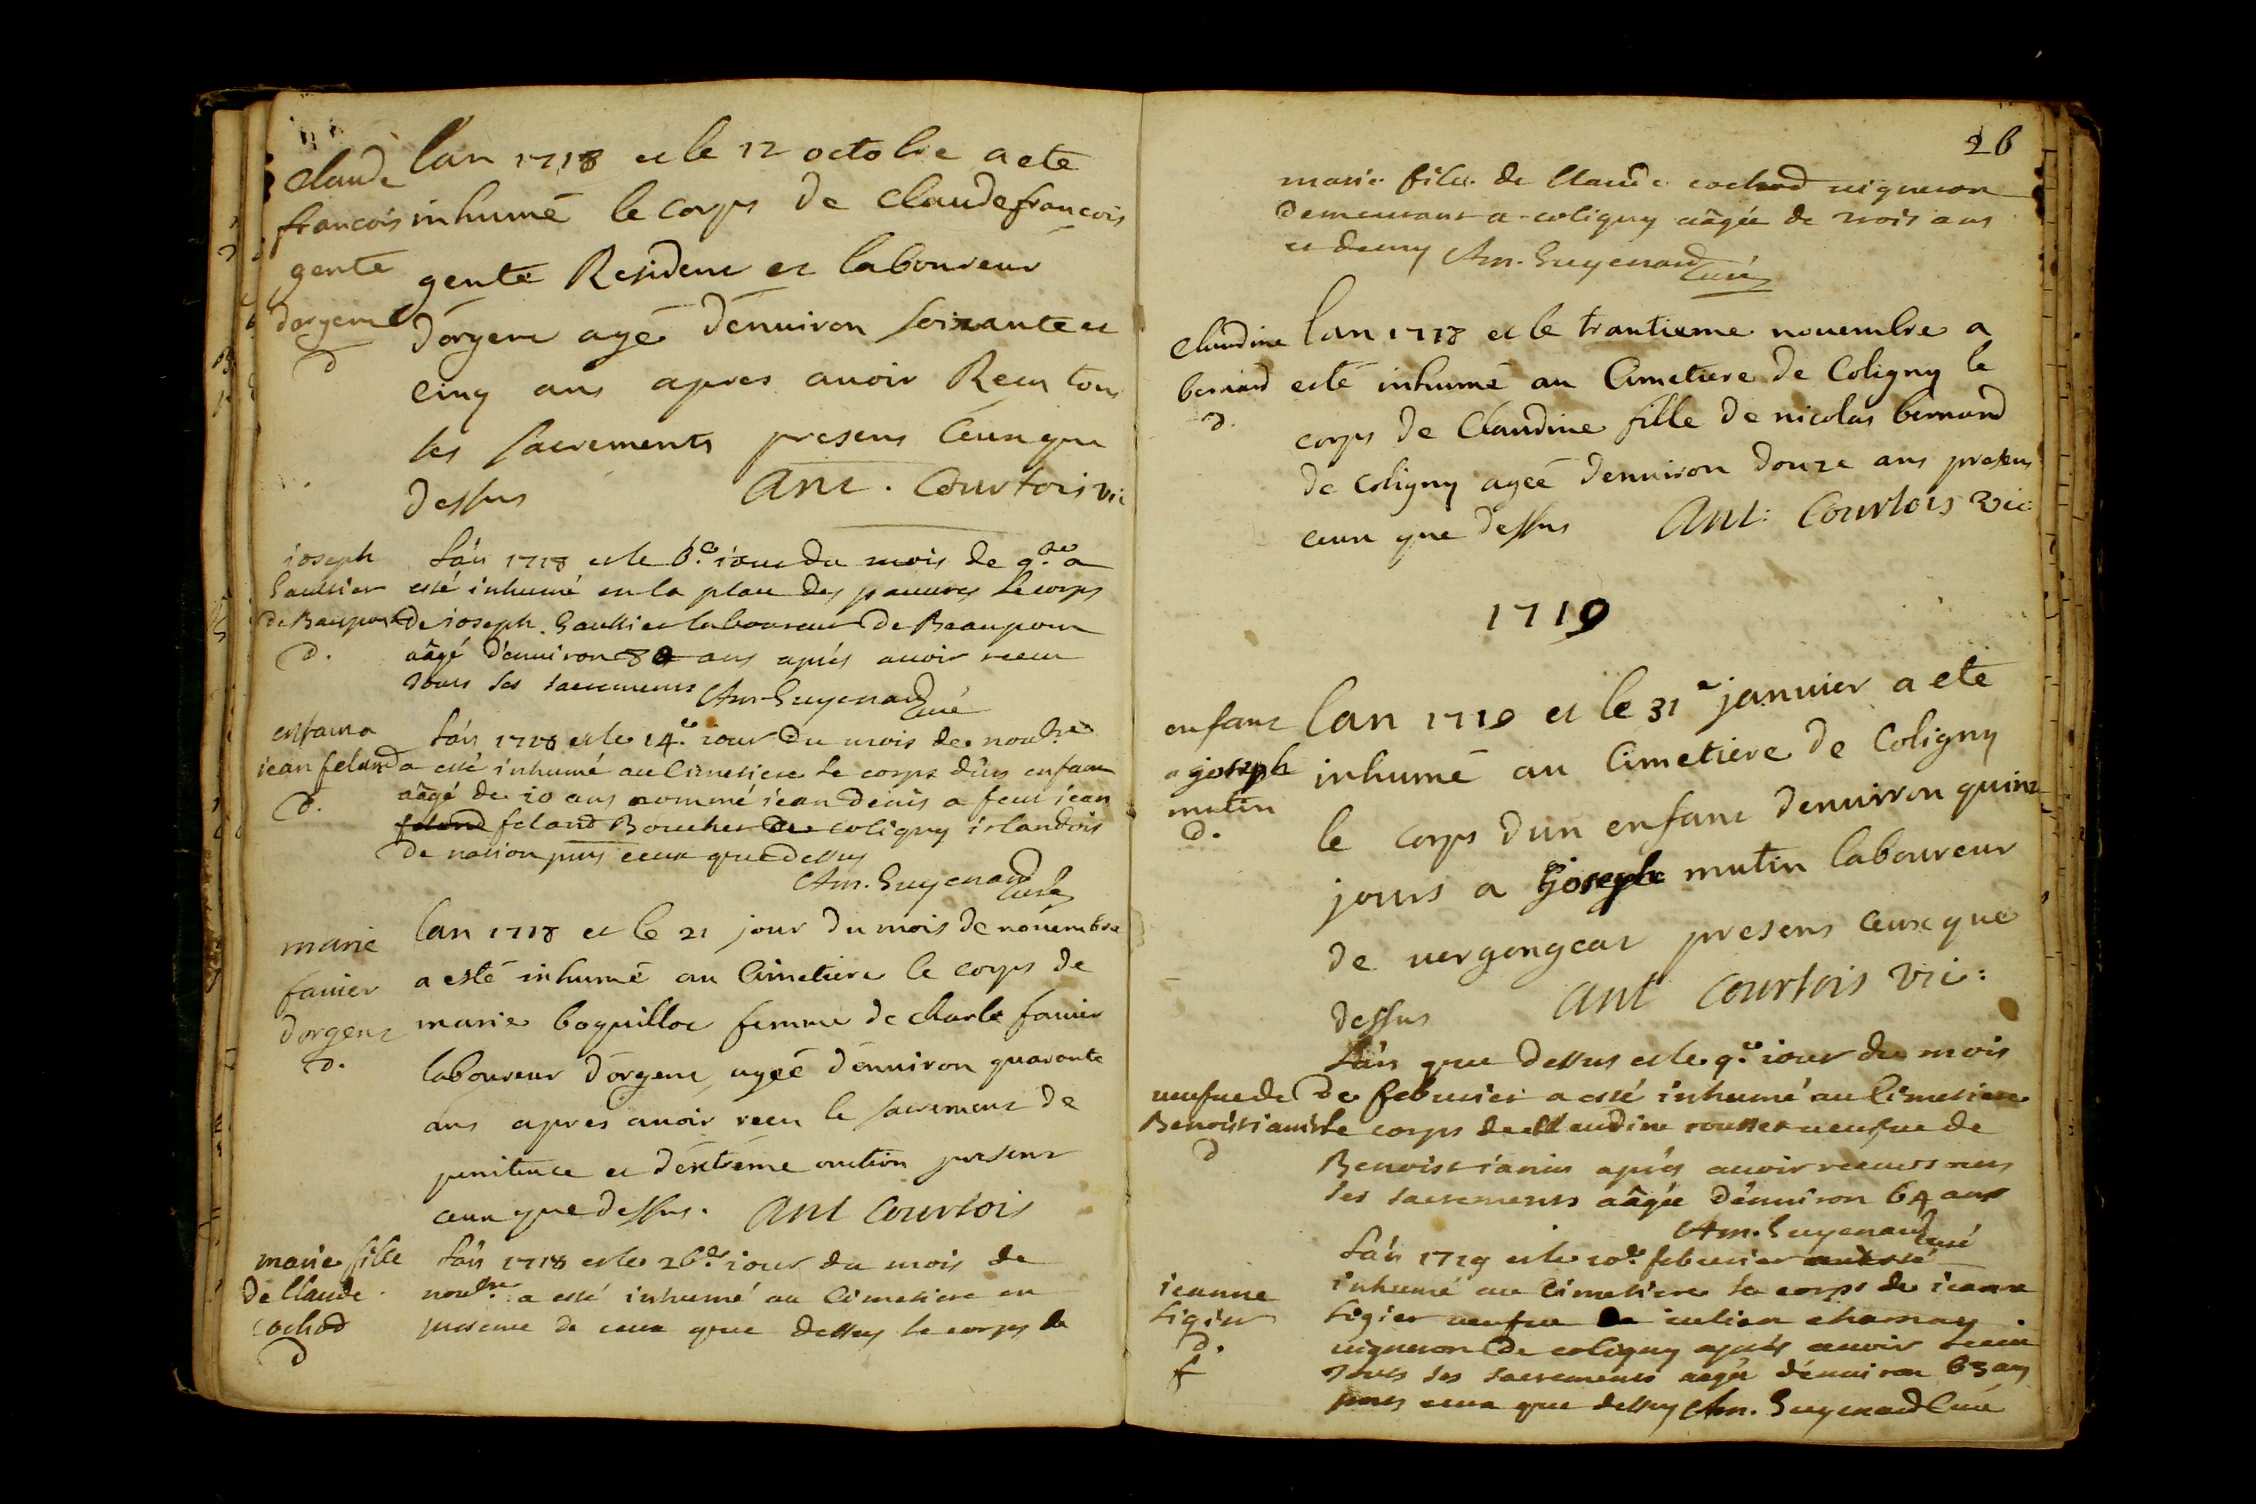 Claude
francois
gente
dorgent
d
lan 1718 et le 12 octobre a ete
inhumé le corps de Claudefrancois
gente Resident et laboureur
dorgent agé denuiron soixante et
cinq ans apres auoir Recu tous
les sacrements presens Ceux que
dessus Ant. Courtois vic
ioseph
Gaultier
de Beaupont
d.
Lan 1718 et le 6.e iour du mois de 9.bre a
esté inhumé en la place des pauures le corps
de ioseph Gaultier laboureur de Beaupont
aâgé d'enuiron 80 ans aprés auoir receu
tous les sacremens Am. Guyenard
Curé
enfant a
iean feland
d.
Lan 1718 et le 14.e iour du mois de nou.bre
a esté inhumé au Cimetiere le corps d'un enfant
aâgé de 10 ans nommé iean denis a feut iean
feland feland Boucher de coligny irlandois
de nation pnts ceux que dessus
Am. Guyenard
Curé
marie
fauier
dorgent
d.
lan 1718 et le 21 jour du mois de nouembre
a esté inhumé au Cimetiere le corps de
marie boquilloc femme de charle fauier
laboureur dorgent ageé denuiron quarante
ans apres auoir recu le sacrement de
penitence et d'extréme onction presens
ceux que dessus. Ant Courtois
marie fille
de Claude
cochod
d
Lan 1718 et le 26.e iour du mois de
nou.bre a esté inhumé au Cimetiere en
presence de ceux que dessus le corps de
26
marie fille de Claude cochod uigneron
demeurant a coligny aâgée de trois ans
et demy Am. Guyenard
Curé
Claudine
bernard
d.
lan 1718 et le trantieme nouembre a
esté inhumé au Cimetiere de Coligny le
corps de Claudine fille de nicolas bernard
de coligny ageé denuiron douze ans presens
ceux que dessus Ant: Courtois vic
1719
enfant
a joseph
mutin
d.
lan 1719 et le 31e januier a ete
inhumé au Cimetiere de Coligny
le corps dun enfant denuiron quinz
jours a joseph mutin laboureur
de uergongeat presens Ceux que
dessus Ant Courtois vic:
ueufue de
Benoist ianin
d
Lan que dessus et le 9.e iour du mois
de feburier a esté inhumé au Cimetiere
le corps de Claudine rousset ueufue de
Benoist ianin aprés auoir receu tous
les sacremens aâgée d'enuiron 64 ans
Am. Guyenard Curé
ieanne
Ligier
d.
f
Lan 1719 et le 10.e feburier a esté
inhumé au Cimetiere le corps de ieanne
Ligier ueufue de iulien charnay
uigneron de coligny aprés auoir receu
tous les sacremens aagée d'enuiron 63 ans
pnts ceux que dessus Am. Guyenard Curé